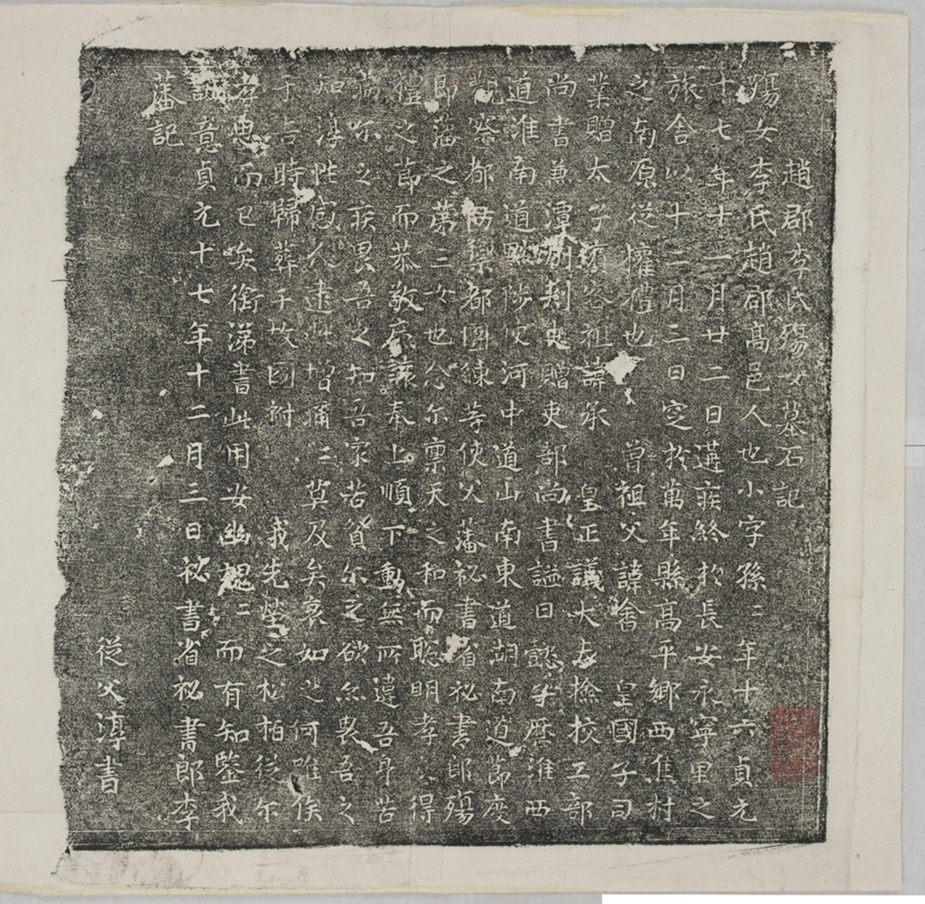 趙郡李氏殤女墓石記
殤女李氏趙郡高邑人也小字孫二年十六貞元
十七年十一月廿二日遘疾終於長安永寧里之
旅舍以十二月三日窆於萬年縣高平鄉西焦村
之南原從權禮也 曾祖父諱畬 皇國子司
業贈太子 祖諱承 皇正議大夫撿挍工部
尚書兼潭州刺史贈吏部尚書謚曰懿 歷淮西
道淮南道黜陟使河中道山南東道湖南道節度
觀察都防禦都團練等使父藩祕書省祕書郎殤
即藩之第三女也念尔禀天之和而聡明孝 得
禮之節而恭敬 奉上順下動無所違吾身苦
尔之疾畏吾之知吾家苦貧尔之欲 畏吾之
知淳性 人 此增痛二莫及矣哀如之何唯俟
于吉時歸葬于故國祔 我先塋之松柏從尔
孝思而已矣銜涕書此用安幽 二而有知鑒我
誠意貞元十七年十二月三日祕書省祕書郎李
藩記
從父淳書